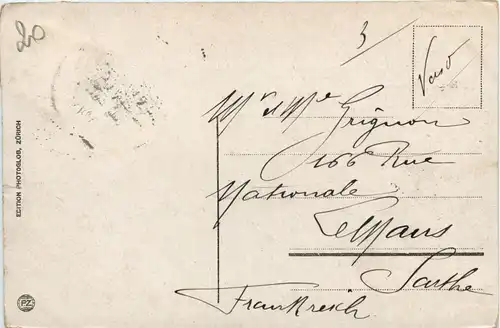 20
3/
Verso
Mr et Me Grignon
166 Rue
Nationale
Le Mans
Sarthe
Frankreich
EDITION PHOTOGLOB, ZÜRICH
PZ